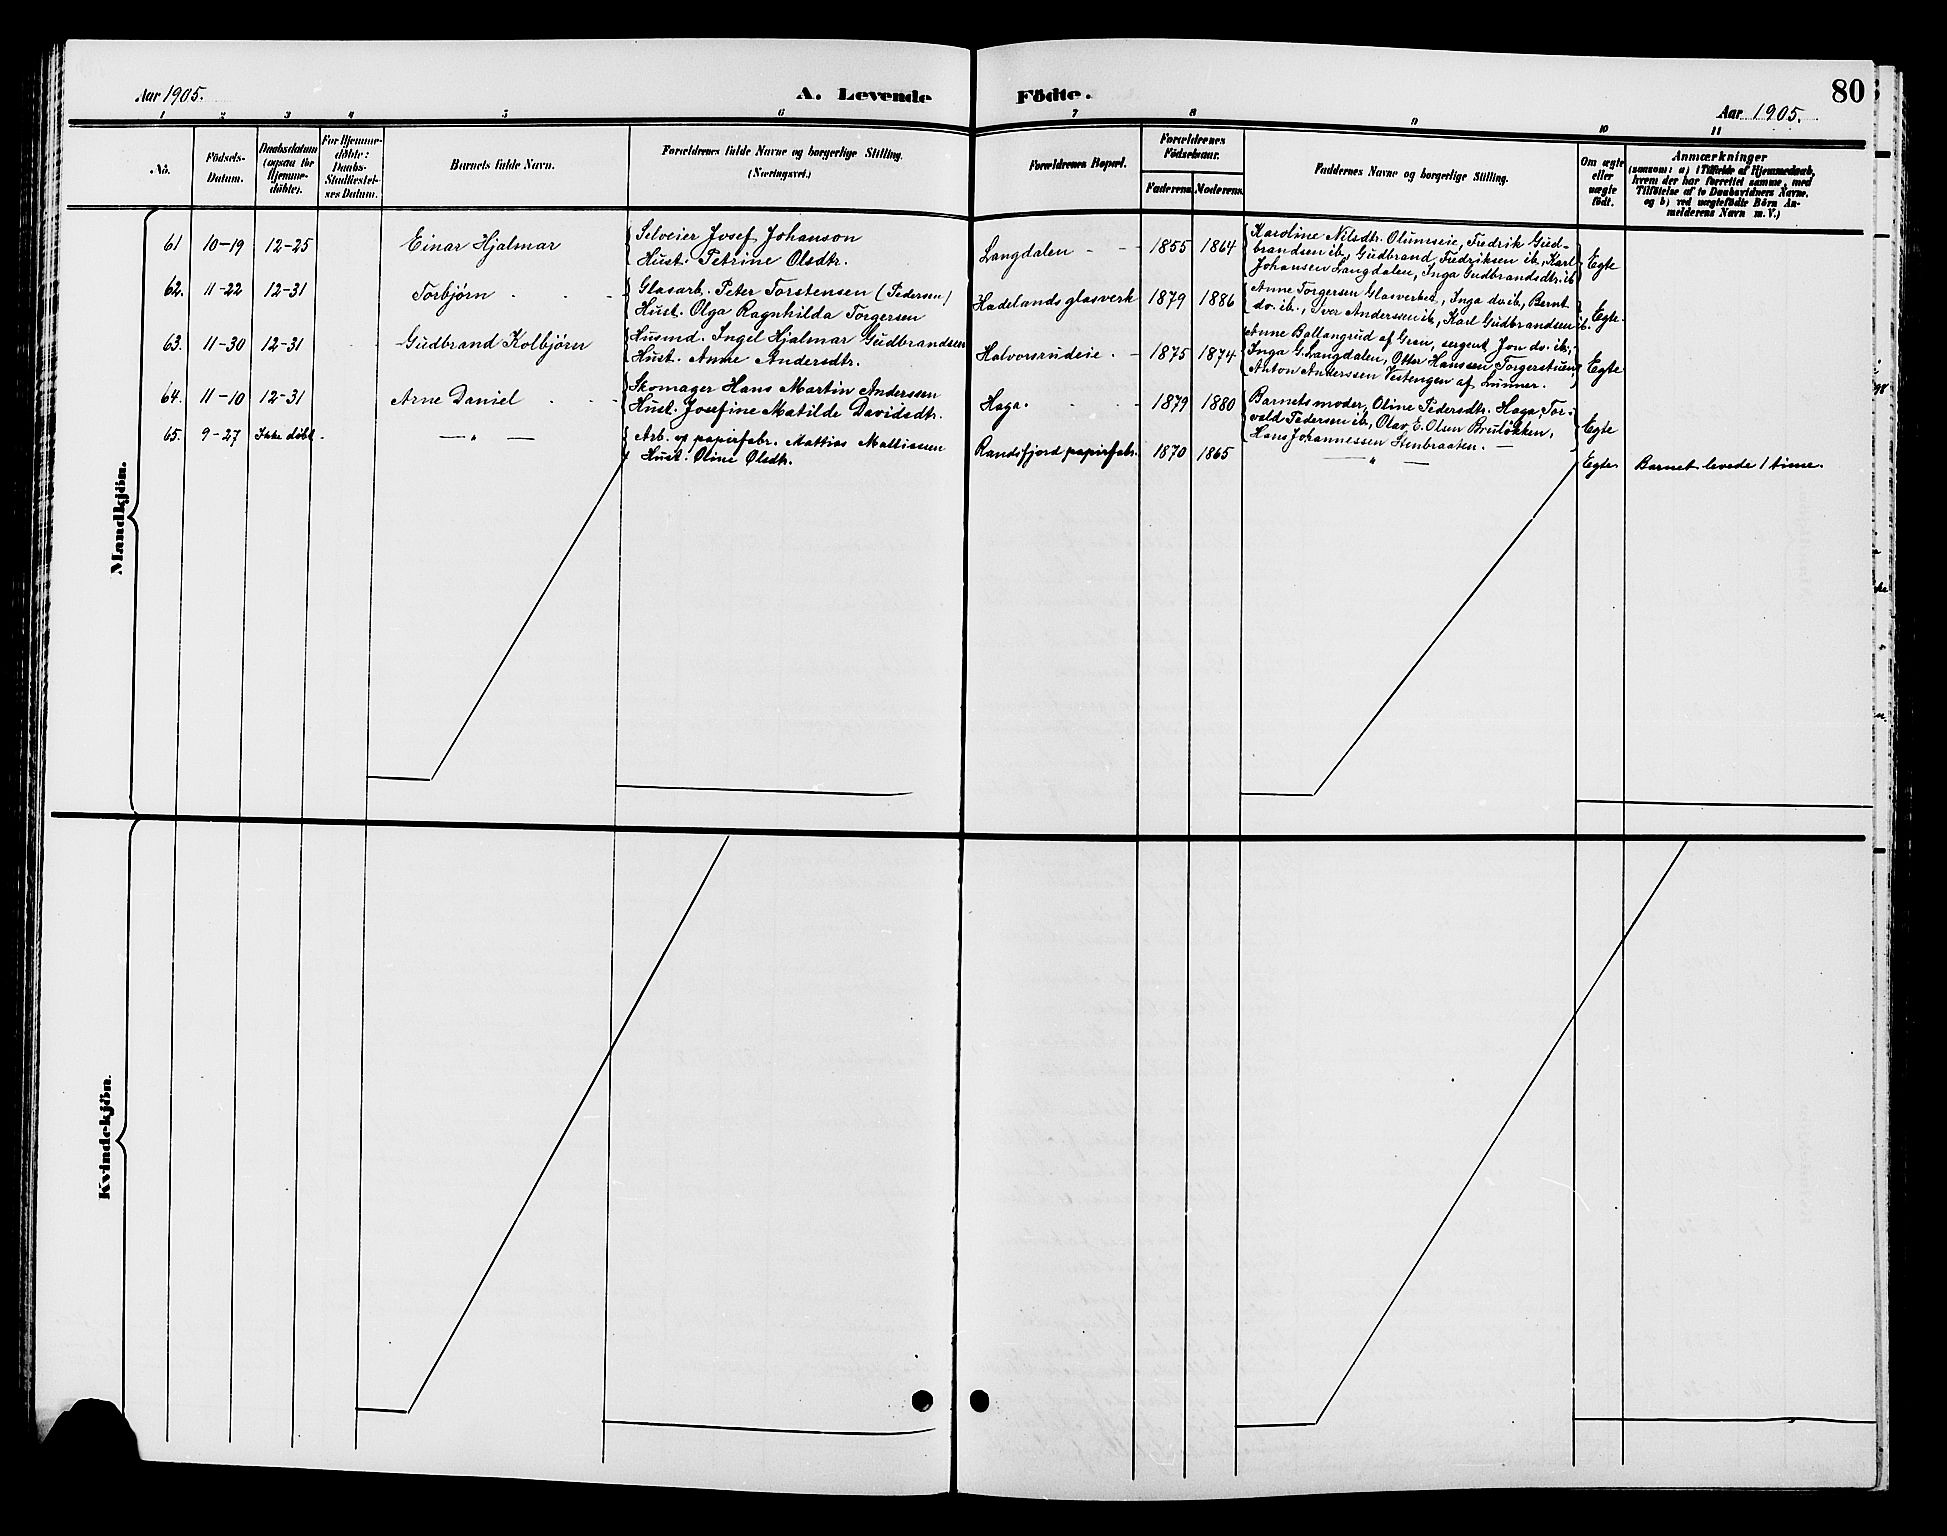 Aar 1905.
A. Levende Födte.
80
Aar 1905.
1 2 3 4 5 6 7 8 9 10 11
No.
Födsels-
Datum.
Daabsdatum
(ogsaa for
Hjemme-
døbte).
For Hjemme-
døbte:
Daabs-
Stadfæstel-
ses Datum.
Barnets fulde Navn.
Forældrenes fulde Navne og borgerlige Stilling.
(Næringsvei.)
Forældrenes Bopæl.
Forældrenes
Födselsaar.
Faderens.
Moderens.
Faddernes Navne og borgerlige Stilling.
Om ægte
eller
uægte
født.
Anmærkninger
(saasom: a) i Tilfælde af Hjemmedaab,
hvem der har forrettet samme, med
Tilføielse af to Daabsvidners Navne.
og b) ved uægtefødte Børn An-
melderens Navn m. V.)
Mandkjön.
61 10-19 12-25 Einar Hjalmar
Selveier Josef Johanson
Hust. Petrine Olsdtr.
Langdalen 1855 1864
Karoline Nilsdtr. Olumseie, Fredrik Gud-
brandsen ib., Gudbrand Fredriksen ib., Karl
Johansen Langdalen, Inga Gudbrandsdtr. ib
Egte
62. 11-22 12-31 Torbjørn
Glasarb. Peter Torstensen (Pedersen)
Hust. Olga Ragnhilda Torgersen
Hadelands glasverk 1879 1886
Anne Torgersen Glasverket, Inga do. ib., Bernt
do. ib., Iver Andersen ib., Karl Gudbrandsen ib.
Egte.
63. 11-30 12-31 Gudbrand Kolbjørn
Husmd. Ingel Hjalmar Gudbrandsen
Hust. Anne Andersdtr.
Halvorsrudeie 1875 1874
Anne Ballangrud af Gran, sergent Jon do. ib.,
Inga G. Langdalen, Otter Hanssen Torgerstuen
Anton Anderssen Vestengen af Lunner.
Egte
64. 11-10 12-31 Arne Daniel
Skomager Hans Martin Anderssen
Hust. Josefine Matilde Davidsdtr.
Haga. 1879 1880
Barnets moder, Oline Pedersdtr. Haga, Tor-
vald Pedersen ib., Olav E. Olsen Bruløkken,
Hans Johannessen Stenbraaten. —
Egte
65. 9-27 Ikke døbt. — " —
Arb. pp papirfabr. Mattias Mattiassen
Hust. Oline Olsdtr.
Randsfjord papirfabr. 1870 1865
— " —
Egte. Barnet levede 1 time.
Kvindekjön.